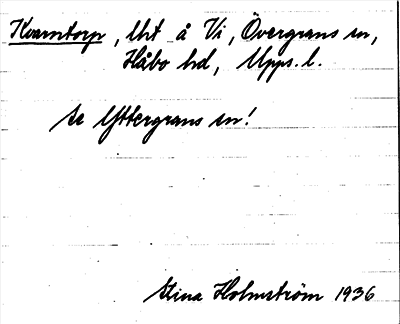 Kvarntorp, lht å Vi, Övergrans sn,
Håbo hd, Upps. l.
se Yttergrans sn!
Stina Holmström 1936